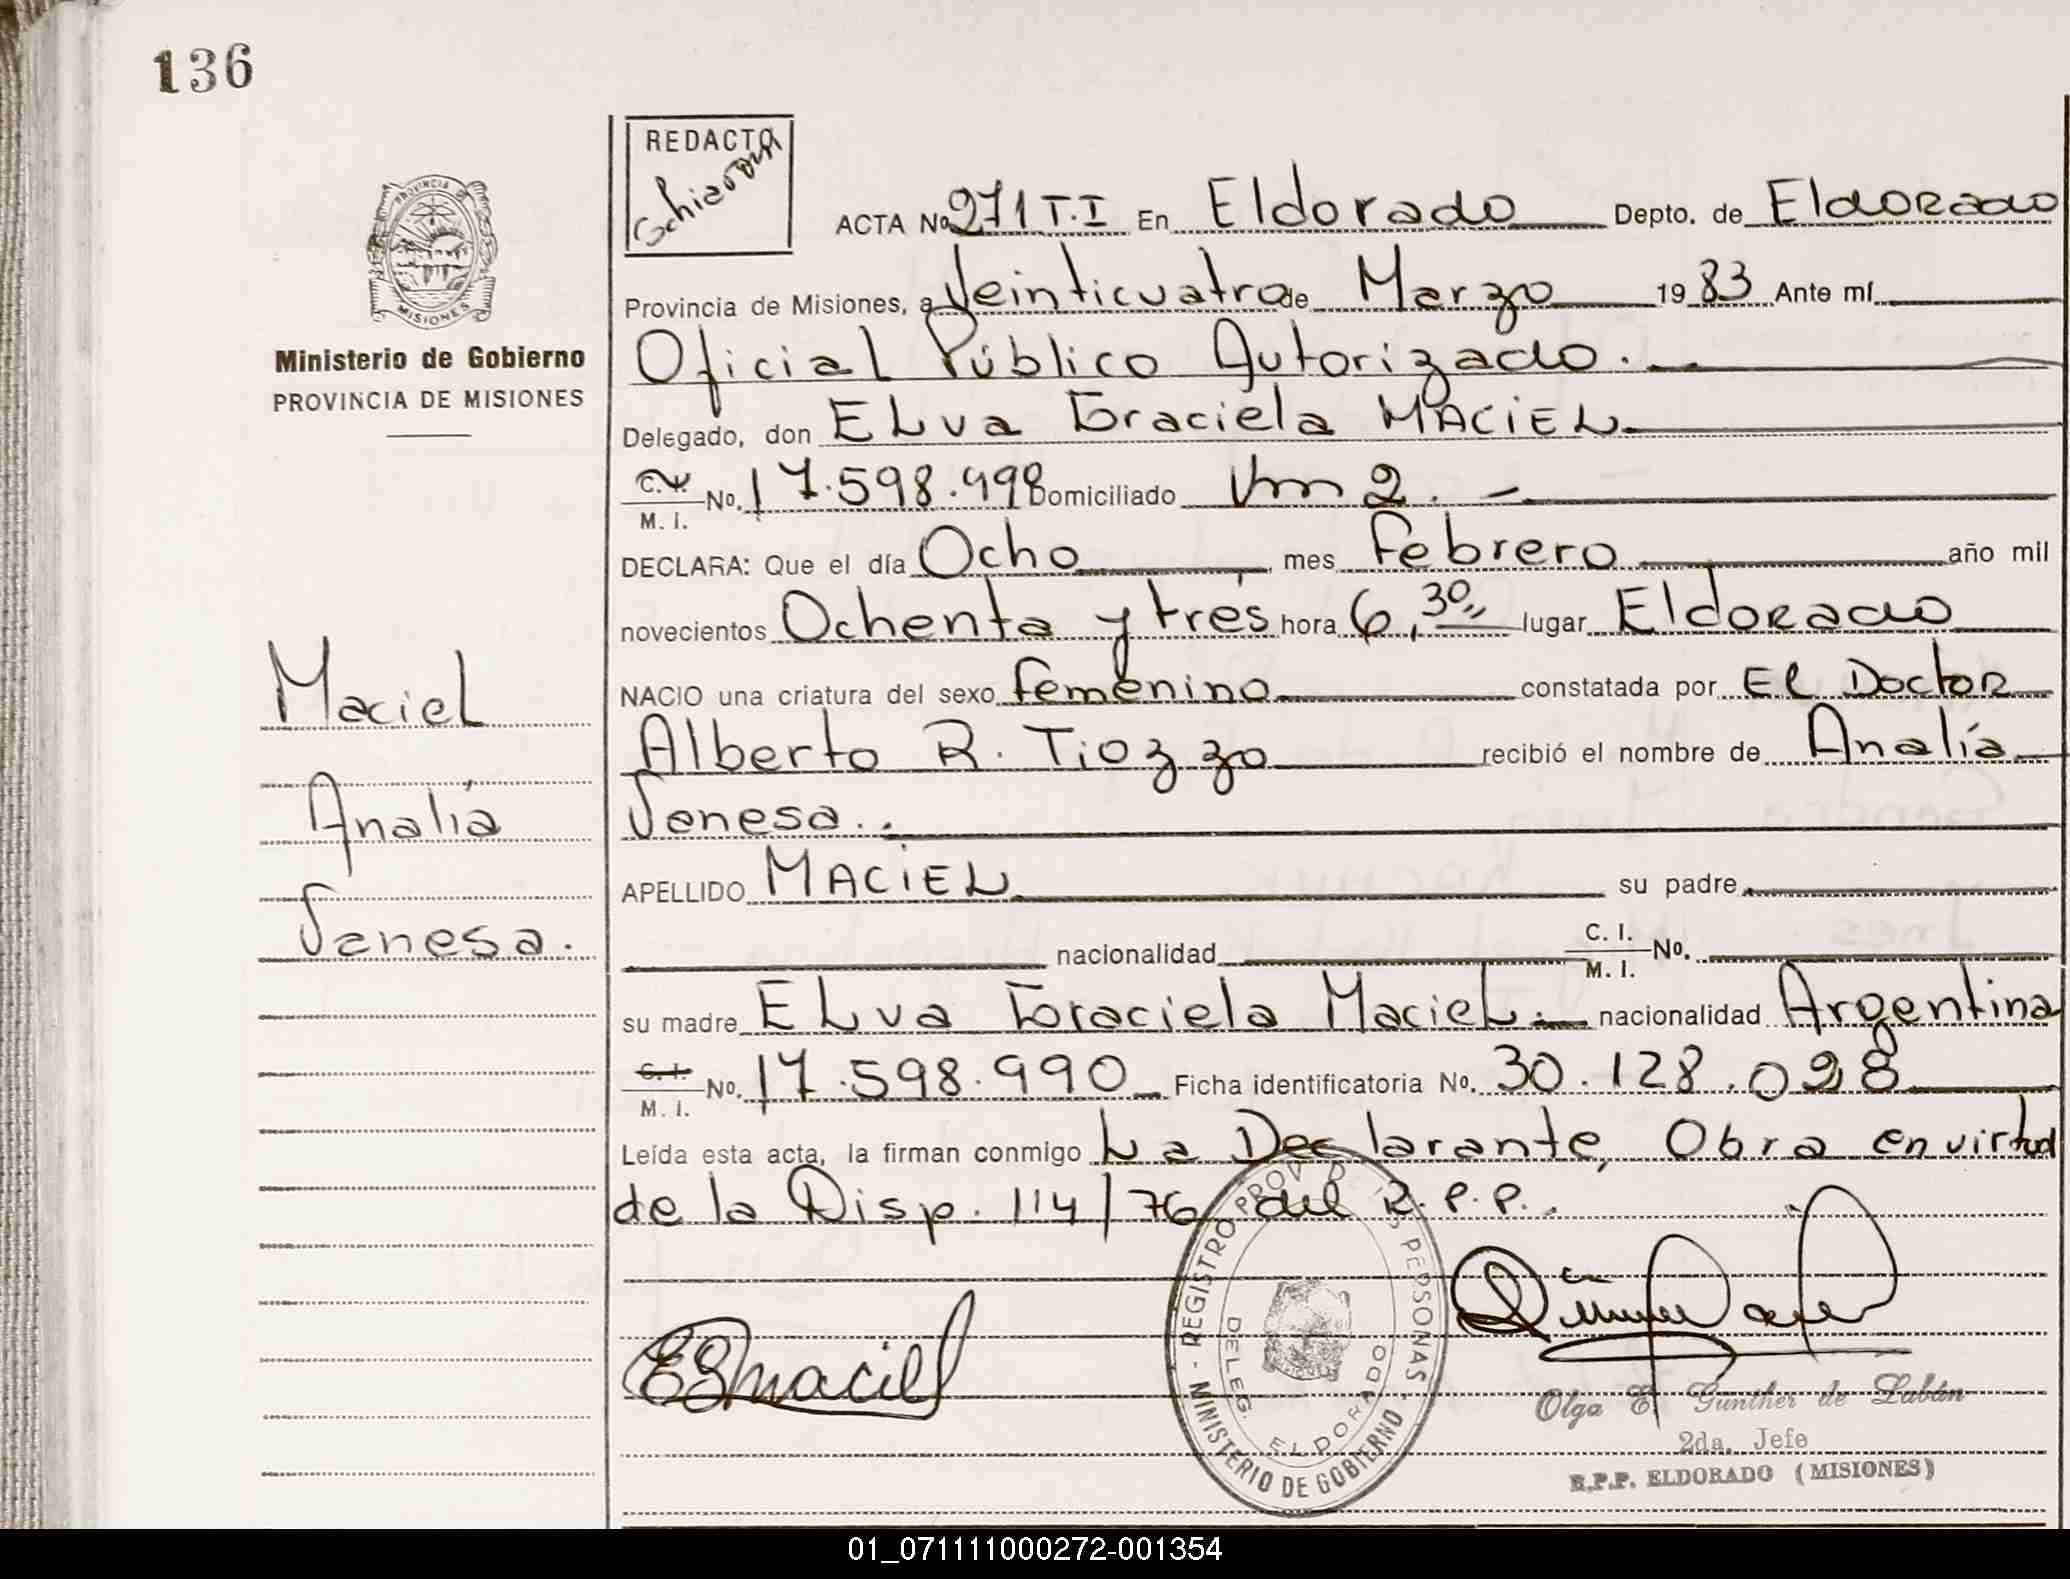 136
REDACTO
Schiavoni
PROVINCIA DE
MISIONES
Ministerio de Gobierno
PROVINCIA DE MISIONES
ACTA No 271 T.I En Eldorado Depto. de Eldorado
Provincia de Misiones, a Veinticuatro de Marzo 19 83 Ante mí
Oficial Público Autorizado.
Delegado, don ELva Graciela MACIEL
C. I. No. 17.598.998 Domiciliado Km 2.
M. I.
DECLARA: Que el día Ocho mes Febrero año mil
novecientos Ochenta y tres hora 6,30 lugar Eldorado
NACIO una criatura del sexo femenino constatada por El Doctor
Alberto R. Tiozzo recibió el nombre de Analía
Vanesa.
APELLIDO MACIEL su padre
nacionalidad C. I. No.
M. I.
su madre ELva Graciela Maciel. nacionalidad Argentina
C. I. No. 17.598.990 Ficha identificatoria No. 30.128.098
M. I.
Leída esta acta, la firman conmigo La Declarante, Obra en virtud
de la Disp. 114/76 del R.P.P.
Maciel
Analía
Vanesa.
EGMaciel
REGISTRO PROV. DE LAS PERSONAS
MINISTERIO DE GOBIERNO
DELEG. ELDORADO
Olga E. Gunther de Labán
2da. Jefe
R.P.P. ELDORADO (MISIONES)
01_071111000272-001354